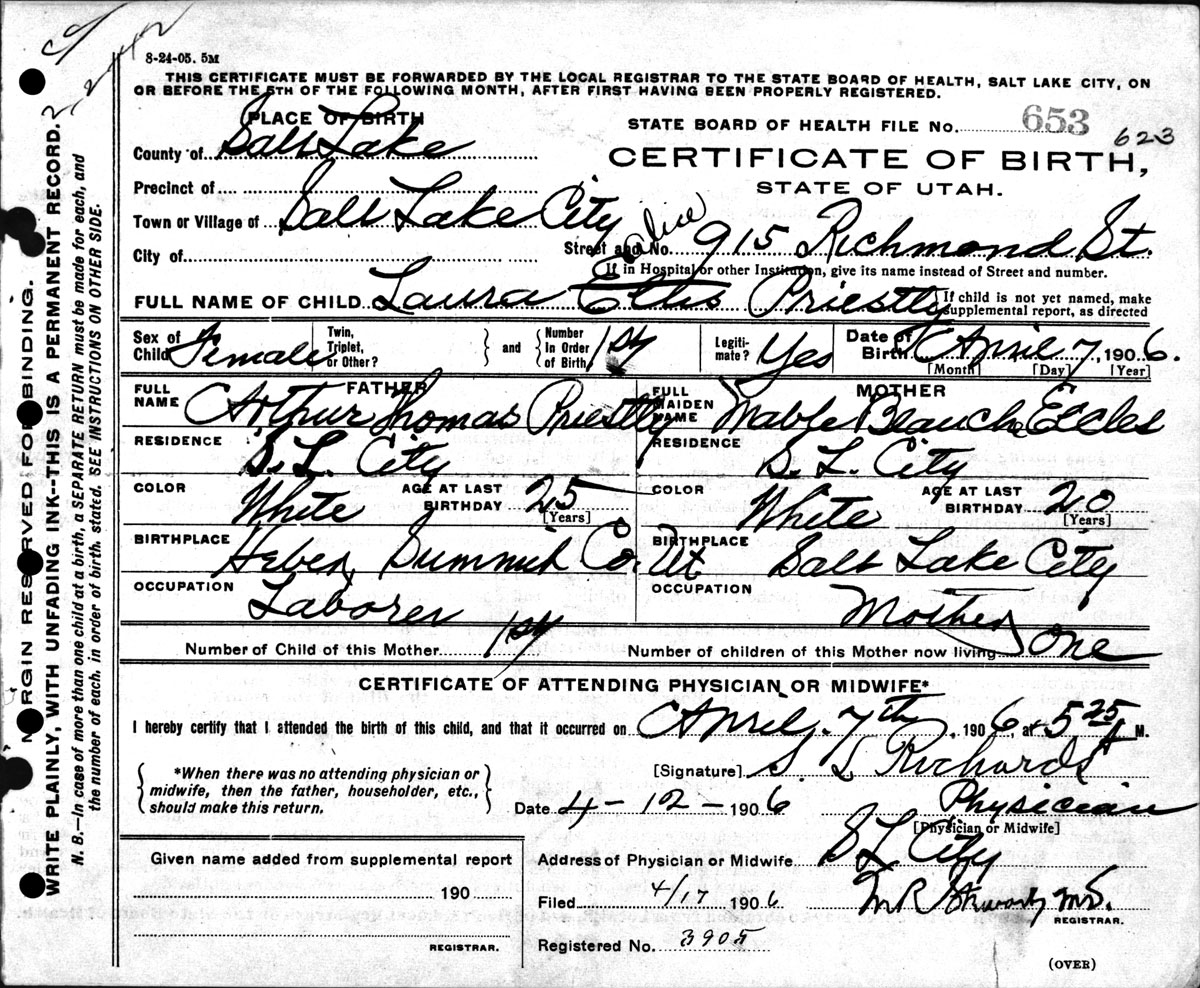 8-24-05. 5M
THIS CERTIFICATE MUST BE FORWARDED BY THE LOCAL REGISTRAR TO THE STATE BOARD OF HEALTH, SALT LAKE CITY, ON
OR BEFORE THE 5TH OF THE FOLLOWING MONTH, AFTER FIRST HAVING BEEN PROPERLY REGISTERED.
PLACE OF BIRTH
STATE BOARD OF HEALTH FILE No. 653 623
County of Salt Lake
CERTIFICATE OF BIRTH,
STATE OF UTAH.
Precinct of
Town or Village of Salt Lake City
City of
Street and No. 915 Richmond St.
If in Hospital or other Institution, give its name instead of Street and number.
Alice
FULL NAME OF CHILD Laura Ellis Priestly
If child is not yet named, make
supplemental report, as directed
Sex of Child Female
Twin, Triplet, or Other?
and
Number In Order of Birth 1st
Legitimate? Yes
Date of Birth April 7, 1906.
[Month] [Day] [Year]
FATHER
FULL NAME Arthur Thomas Priestly
MOTHER
FULL MAIDEN NAME Mable Blanche Eccles
RESIDENCE S. L. City
RESIDENCE S. L. City
COLOR White
AGE AT LAST BIRTHDAY 25
[Years]
COLOR White
AGE AT LAST BIRTHDAY 20
[Years]
BIRTHPLACE Heber, Summit Co. Ut
BIRTHPLACE Salt Lake City
OCCUPATION Laborer
OCCUPATION Mother
Number of Child of this Mother 1st
Number of children of this Mother now living One
CERTIFICATE OF ATTENDING PHYSICIAN OR MIDWIFE*
I hereby certify that I attended the birth of this child, and that it occurred on April 7th, 1906, at 5 25 A M.
*When there was no attending physician or
midwife, then the father, householder, etc.,
should make this return.
[Signature] S. L Richards
Date 4-12-1906
Physician
[Physician or Midwife]
Given name added from supplemental report
190
REGISTRAR.
Address of Physician or Midwife S L City
Filed 4/17 1906
M.D.
REGISTRAR.
Registered No. 3905
(OVER)
MARGIN RESERVED FOR BINDING.
WRITE PLAINLY, WITH UNFADING INK--THIS IS A PERMANENT RECORD.
N. B.—In case of more than one child at a birth, a SEPARATE RETURN must be made for each, and
the number of each, in order of birth, stated. SEE INSTRUCTIONS ON OTHER SIDE.